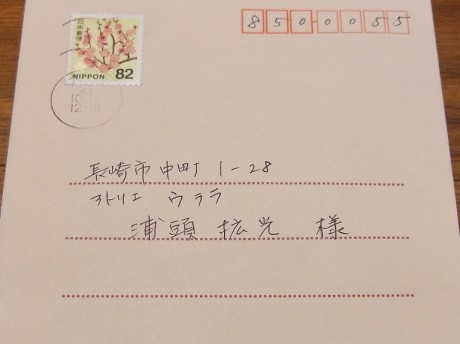 8500055
日本郵便
NIPPON 82
長崎市中町1-28
アトリエ ウララ
浦頭 拡光 様